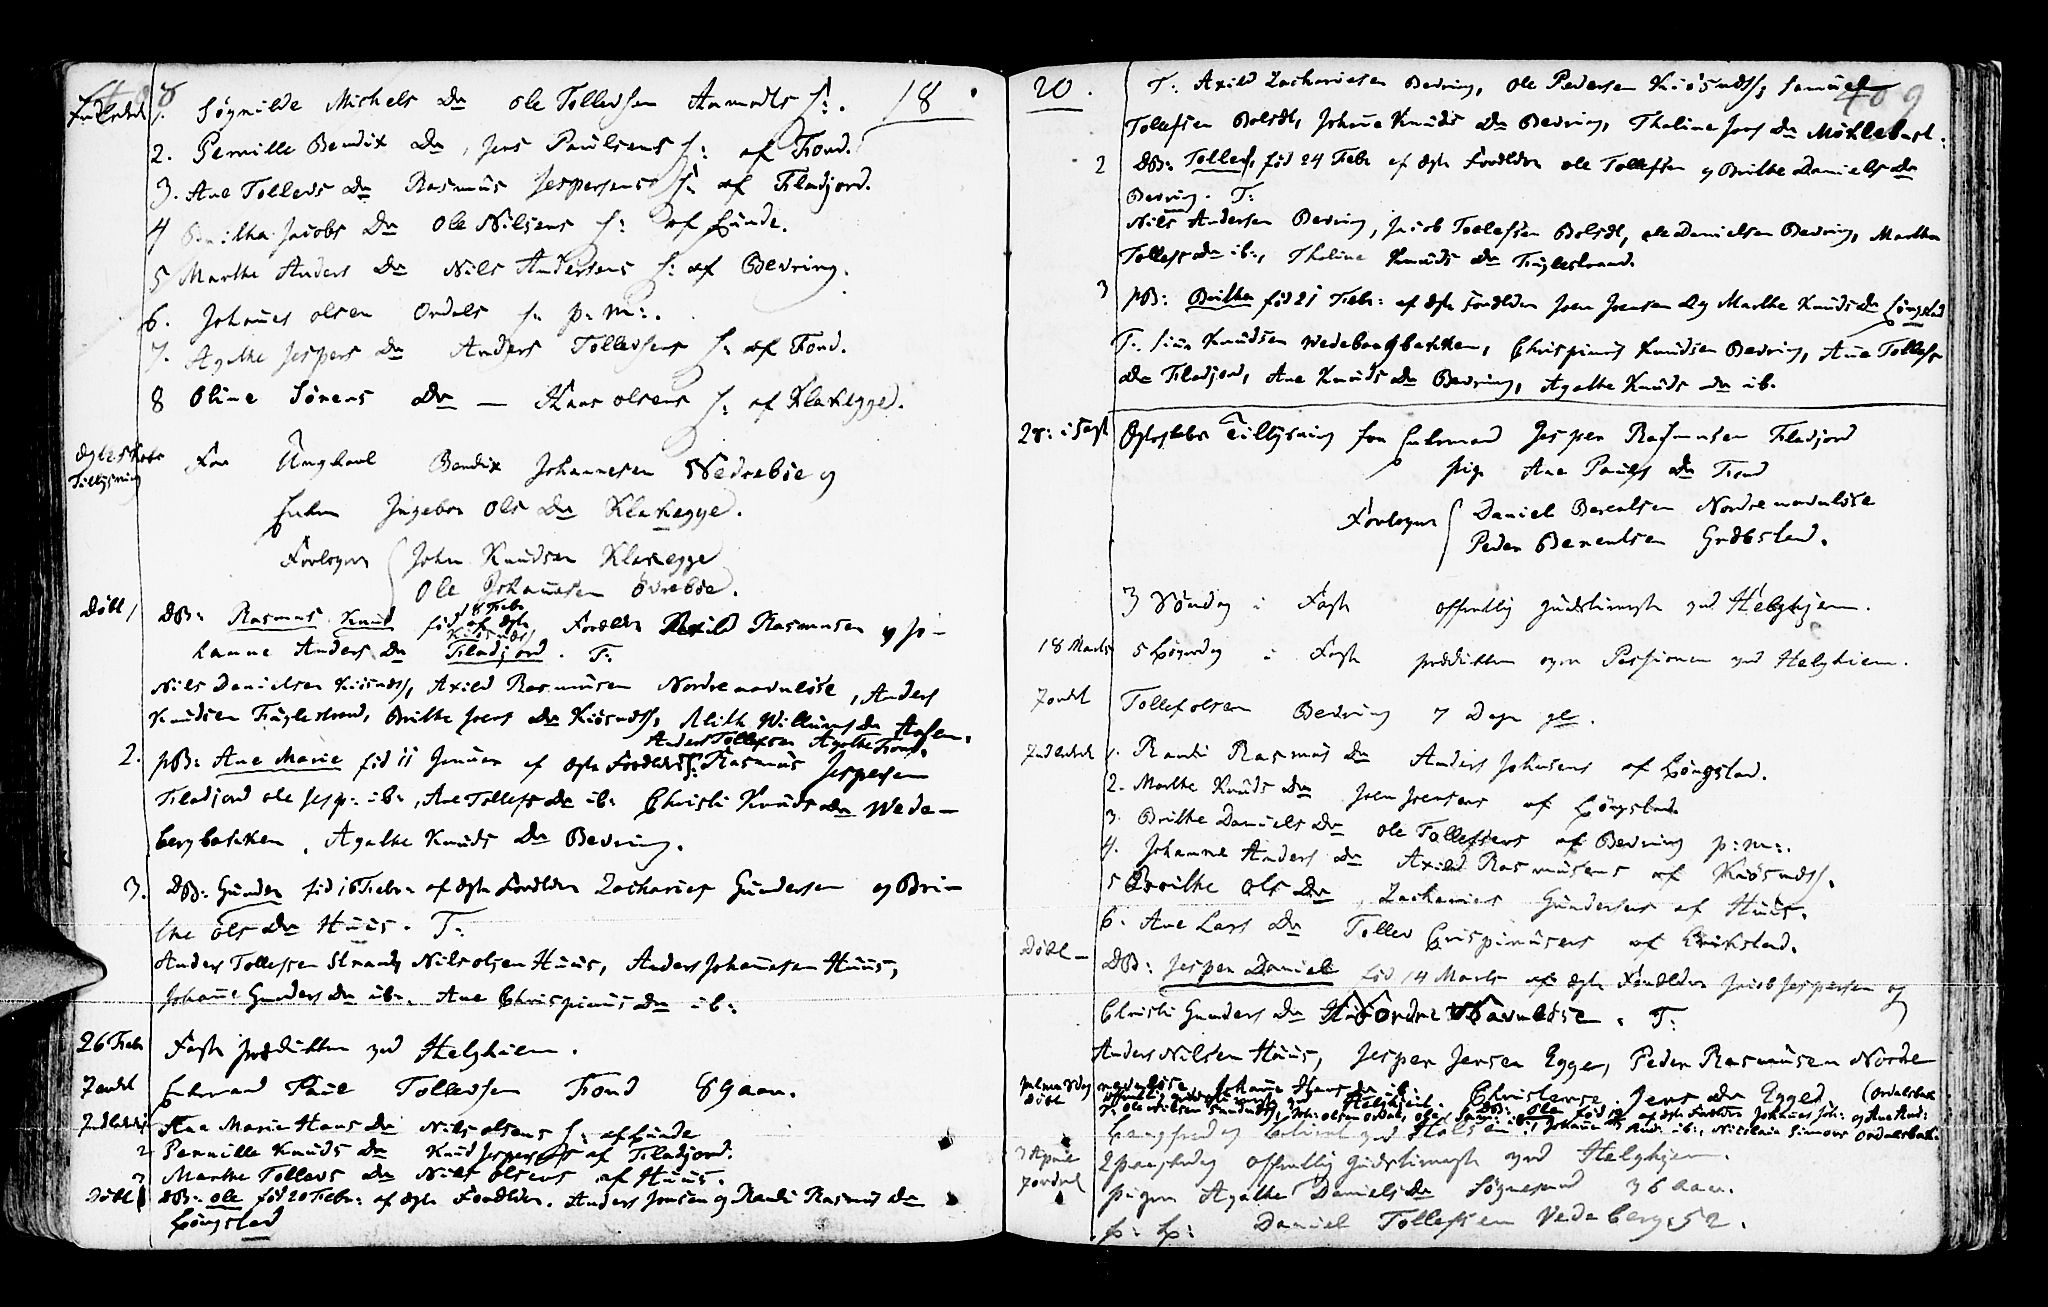 408
18.
Indleded 1. Søgnilde Michels Dr Ole Tollevsen Aamodts H:.
2. Pernille Bendix Dr, Jens Paulsens H: af Fond.
3. Ane Tollevs Dr Rasmus Jespersens H: af Fladjord.
4 Brithe Jacobs Dr Ole Nilsens H: af Lunde.
5 Marthe Anders Dr Nils Andersens H: af Bevring.
6. Johañes Olsen Ordals H: p: m:.
7. Agthe Jespers Dr Anders Tollevsens H: af Fond.
8 Oline Sörens Dr — Hans Olsens H: af Klakegge.
Ægteskabs Tillysning
For Ungkarl Bendix Johannesen Nedreböe og
Enken Ingebor Ols Dr Klakegge.
Forlovere John Knudsen Klakegge
Ole Johañesen Övrebøe.
Döbt 1 DB: Rasmus Knud
föd 8 Febr af Ægte Forældre Axild Rasmusen og Jo-
hanne Anders Dr Fladjord. T:
Nils Danielsen Kiösnæss, Axild Rasmusen Nordre navnløse, Anders
Knudsen Fuglestrand, Brithe Joens Dr Kiösnæss, Alith Willums Dr Aasen.
Anders Tollefsen Agathe Fond.
2. pB: Ane Marie föd 11 Januar af Ægte Forældre Rasmus Jespersen
Fladjord Ole Jesp: ib:, Ane Tollefs Dr ib: Christi Knuds Dr Wede-
bergbakken, Agathe Knuds Dr Bevring.
3. DB: Gunder föd 16 Febr: af Ægte Forældre Zacharies Gundersen og Bri-
the Ols Dr Huus. T:
Anders Tollefsen Strand, Nils Olsen Huus, Anders Johañesen Huus,
Johañe Gunders Dr ib:, Ane Chrispinus Dr ib:
26 Febr Faste prædikken ved Helghiem.
Jordet Enkemand Paul Tollevsen Fond 89 aar.
Indledet 1 Ane Marie Hans Dr Nils Olsens H: af Lunde
2 Pernille Knuds Dr Knud Jespersens af Fladjord.
3 Marthe Tollevs Dr Nils Olsens af Huus.
Döbt 1 DB: Ole föd 20 Febr: af Ægte Forældre. Anders Jonsen og Randi Rasmus Dr
Löngstad
409
20. T: Axild Zachariesen Bevring, Ole Pedersen Kiösnæss, Samuel
Tollefsen Bolsdt, Johañe Knuds Dr Bevring, Thaline Jons Dr Myklebust:
2 DB: Tollef, föd 24 Febr af Ægte Forældre Ole Tollefsen og Brithe Daniels Dr
Bevring. T:
Nils Andersen Bevring, Jacob Tollefsen Bolsdt, Ole Danielsen Bevring, Marthe
Tollefs Dr ib:, Thaline Knuds Dr Fuglestrand.
3 pB: Brithe föd 21 Febr: af Ægte Forældre Joen Joensen og Marthe Knuds Dr Löngstad
T: Knudsen Wedebergbakken, Chrispinus Knudsen Bevring, Ane Tollefs
Dr Fladjord, Ane Knuds Dr Bevring, Agathe Knuds Dr ib.
28: i Fast Ægteskabs Tillysning for Enkemand Jesper Rasmusen Fladjord
pige Ane Pauls Dr Fond
Forlovere Daniel Berentsen Nordre navnlöse
Peder Berentsen Grebstad.
3 Söndag i Faste offentlig gudstieneste ved Helghjem.
18 Marts 5 Löverdag i Faste prædikken over Passionen ved Helghiem.
Jordet Tollef Olsen Bevring 7 Dage gl.
Indledede 1. Randi Rasmus Dr Anders Johnsens af Löngstad.
2. Marthe Knuds Dr Joen Joensens af Löngstad
3. Brithe Daniels Dr Ole Tollefsens af Bevring p: m:.
4. Johanne Anders Dr Axild Rasmusens af Kiösnæss.
5 Brithe Ols Dr, Zacharies Gundersens af Huus.
6. Ane Lars Dr Tollev Crispinusens af Erikstad.
Döbt — DB: Jesper Daniel föd 14 Marts af Ægte Forældre Jacob Jespersen og
Christi Gunders Dr Nordre Navnlöse. T:
Anders Nilsen Huus, Jesper Jensen Egge, Peder Rasmusen Nordre
navnlöse, Johañe Hans Dr ib: Christence Jens Dr Egge. (Ordalsbak
Palmesöndag offentlig gudstieneste ved Helghiem.
Döbt DB: Ole föd 19 af Ægte Forældre Johañes Joh: og Ane And:
Langfredag ved Holsen
3 April 2 paaskedag offentlig gudstieneste ved Helghjem.
Jordet pigen Agathe Daniels Dr Sögnesand 36 aar.
Daniel Tollefsen Vedeberg. 52.